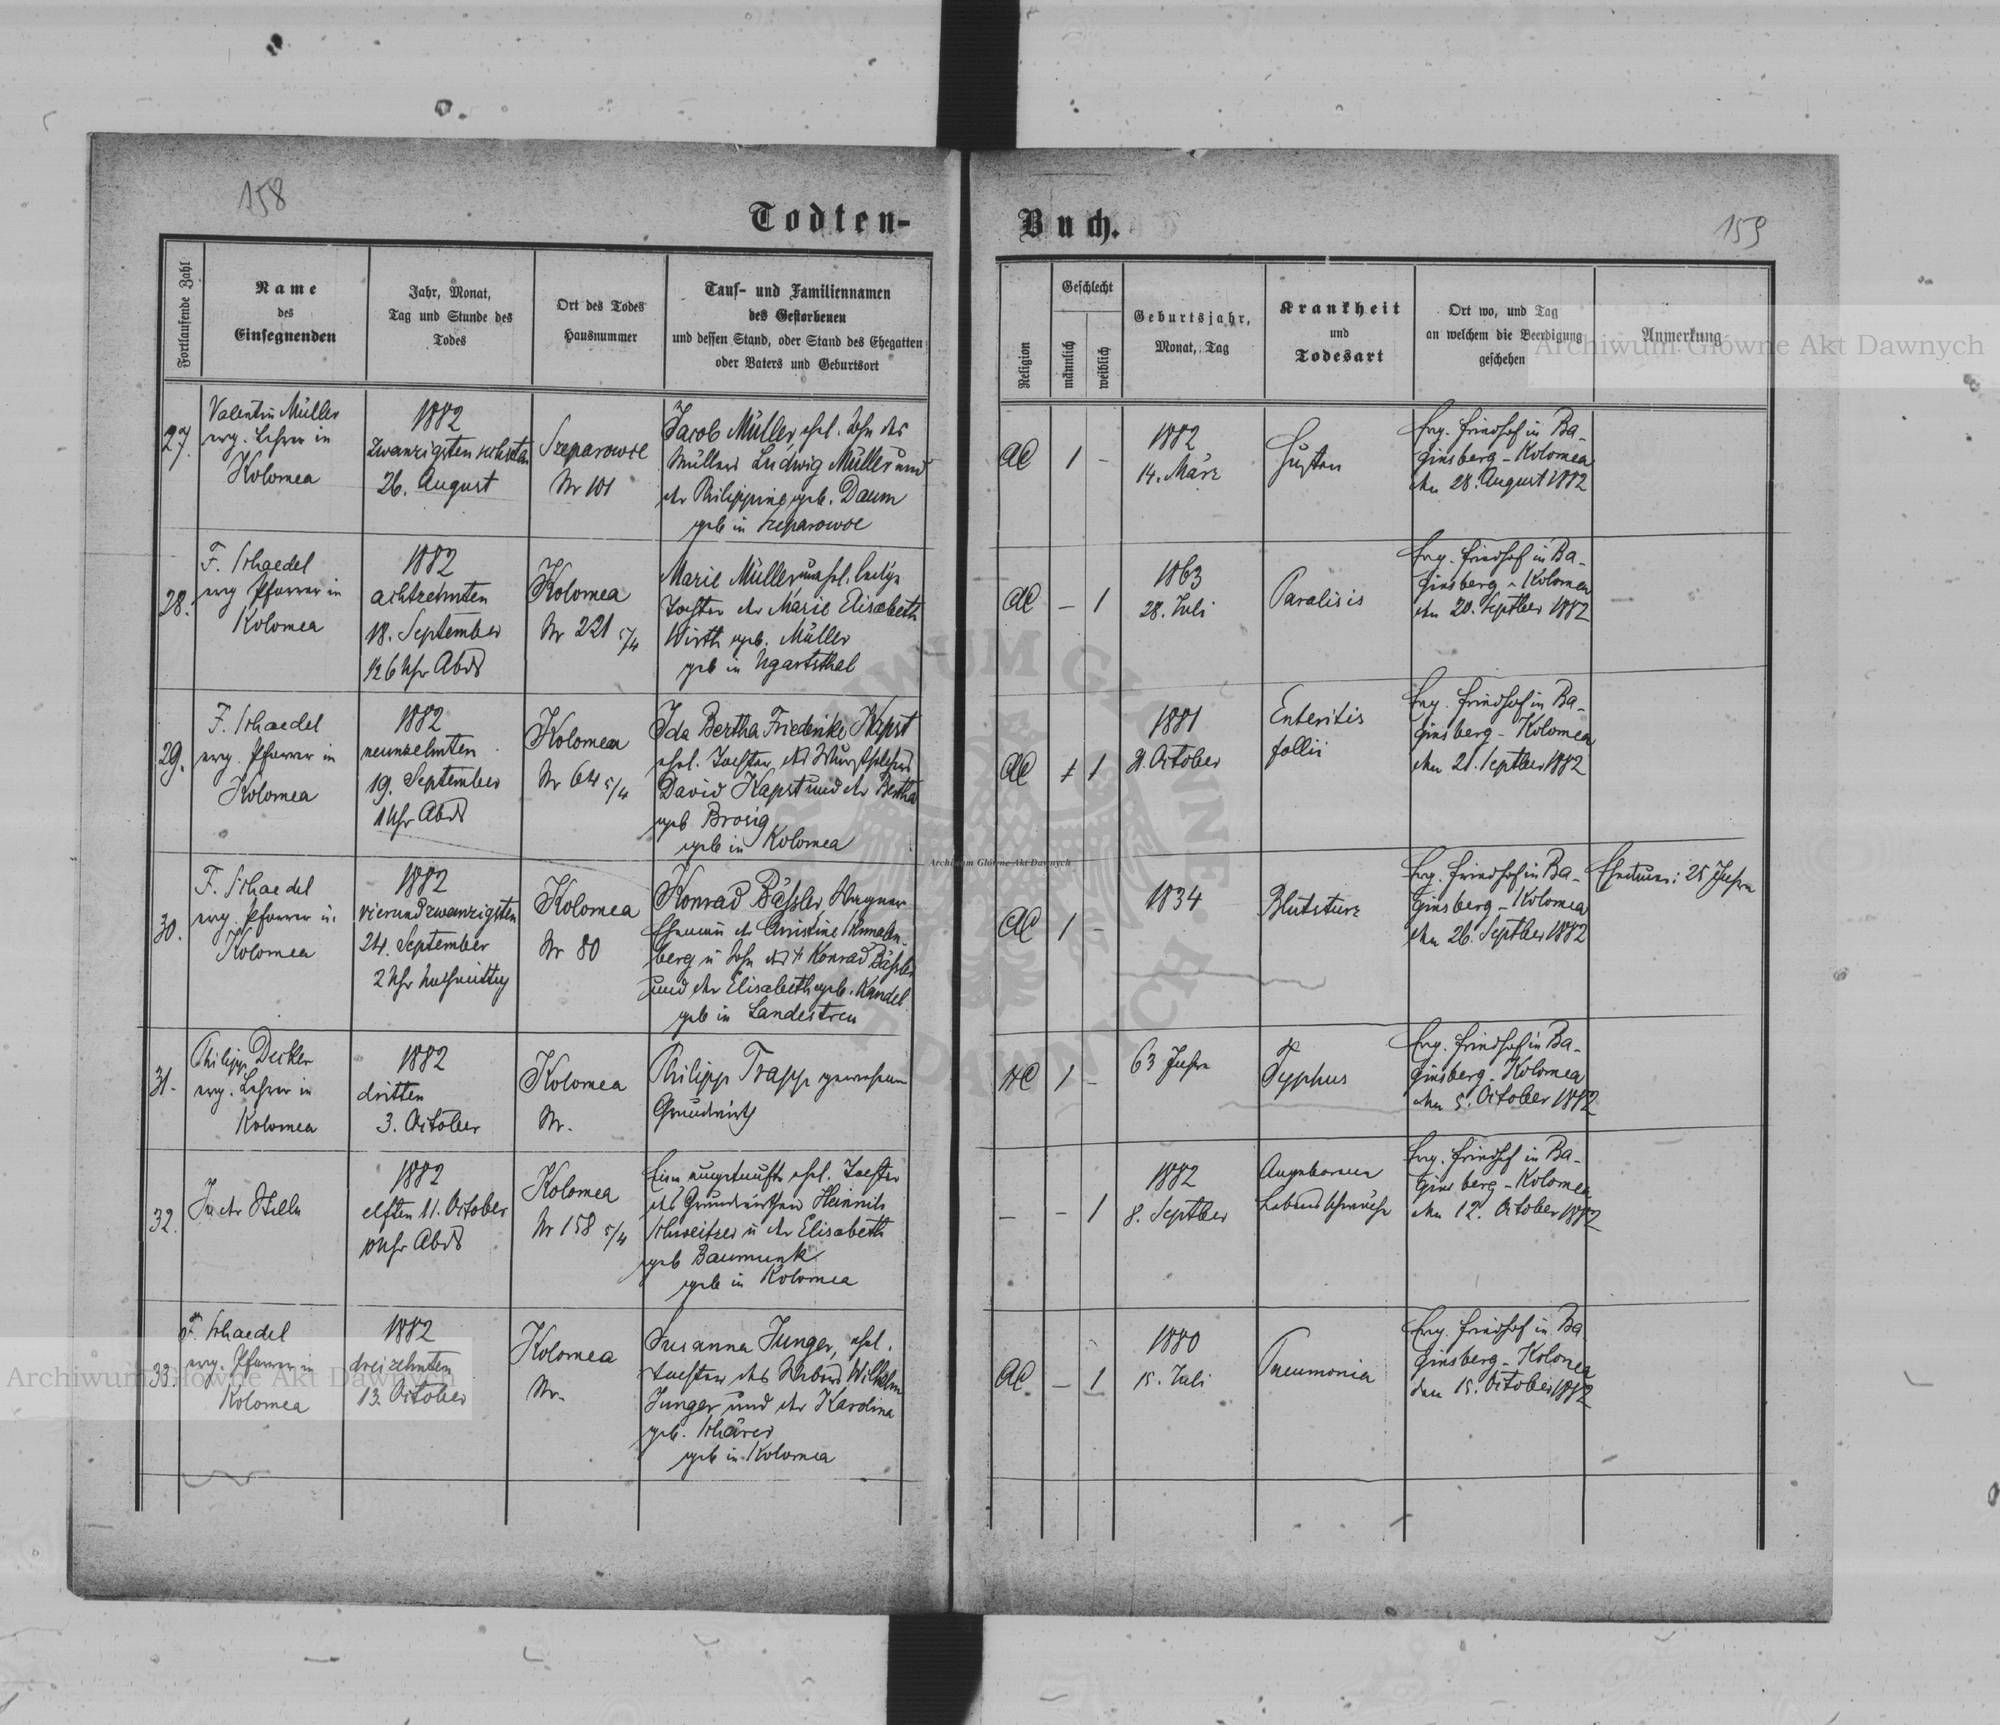 158
Todten-
Fortlaufende Zahl
Name
des
Einsegnenden
Jahr, Monat,
Tag und Stunde des
Todes
Ort des Todes
Hausnummer
Tauf- und Familiennamen
des Gestorbenen
und dessen Stand, oder Stand des Ehegatten
oder Vaters und Geburtsort
27.
Valentin Müller
evg. Lehrer in
Kolomea
1882
zwanzigsten sechsten
26. August
Szeparowce
Nr 101
Jacob Müller, ehel. Sohn des
Müllers Ludwig Müller und
der Philippine geb. Daum
geb in Szeparowce
28.
F. Schaedel
evg Pfarrer in
Kolomea
1882
achtzehnten
18. September
½6 Uhr Abds
Kolomea
Nr 221 5/4
Marie Müller unehel. ledige
Tochter der Marie Elisabeth
Wirth geb. Müller
geb in Ugartsthal
29.
F. Schaedel
evg. Pfarrer in
Kolomea
1882
neunzehnten
19. September
1 Uhr Abds
Kolomea
Nr 64 5/4
Ida Bertha Friederike Kapst
ehel. Tochter des
David Kapst und der Bertha
geb Brosig
geb in Kolomea
30.
F. Schaedel
evg. Pfarrer in
Kolomea
1882
vierundzwanzigsten
24. September
2 Uhr Nachmittag
Kolomea
Nr 80
Konrad Bäßler, Wagner
Ehemann der Christine
berg u Sohn des † Konrad Bäßler
und der Elisabeth geb. Kandel
geb in Landestreu
31.
Philipp Decker
evg. Lehrer in
Kolomea
1882
dritten
3. October
Kolomea
Nr.
Philipp Trapp gewesener
Grundwirth
32.
In der Stille
1882
elften 11. October
Uhr Abds
Kolomea
Nr 158 5/4
Eine ungetaufte ehel. Tochter
des Grundwirthen Heinrich
Schweitzer u der Elisabeth
geb Baumunk
geb in Kolomea
33.
F. Schaedel
evg. Pfarrer in
Kolomea
1882
dreizehnten
13. October
Kolomea
Nr.
Susanna Junger, ehel.
Tochter des Webers Wilhelm
Junger und der Karolina
geb. Schärer
geb in Kolomea
Buch.
159
Religion
Geschlecht
männlich
weiblich
Geburtsjahr,
Monat, Tag
Krankheit
und
Todesart
Ort wo, und Tag
an welchem die Beerdigung
geschehen
Anmerkung
AC
1
-
1882
14. März
Husten
Evg. Friedhof in Ba-
ginsberg - Kolomea
den 28. August 1882
AC
-
1
1863
28. Juli
Paralisis
Evg. Friedhof in Ba-
ginsberg - Kolomea
den 20. Septber 1882
AC
1
1881
October
Enteritis
follii
Evg. Friedhof in Ba-
ginsberg - Kolomea
den 21. Septber 1882
AC
1
-
1834
Blutsturz
Evg. Friedhof in Ba-
ginsberg - Kolomea
den 26. Septber 1882
Ehedauer: 25 Jahre
HC
1
-
63 Jahre
Typhus
Evg. Friedhof in Ba-
ginsberg - Kolomea
den 5. October 1882
-
-
1
1882
8. Septber
Angeborene
Lebensschwäche
Evg. Friedhof in Ba-
ginsberg - Kolomea
den 12. October 1882
AC
-
1
1880
15. Juli
Pneumonia
Evg. Friedhof in Ba
ginsberg - Kolomea
den 15. October 1882
Archiwum Główne Akt Dawnych
Archiwum Główne Akt Dawnych
Archiwum Główne Akt Dawnych
ARCHIWUM GŁÓWNE AKT DAWNYCH